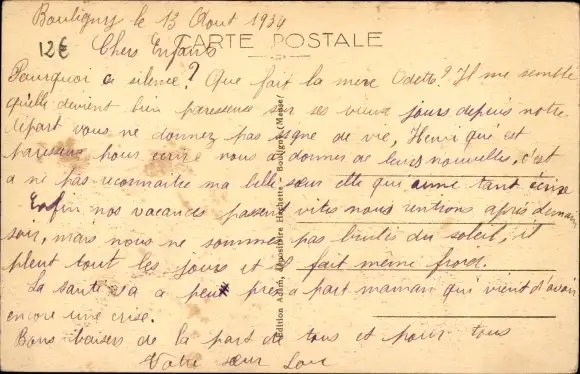 Bouligny le 13 Aout 1934
12€
Chers Enfants
CARTE POSTALE
Pourquoi ce silence? Que fait la mère Odette? Il me semble
qu'elle devient bien paresseuse sur ses vieux jours depuis notre
départ vous ne donnez pas signe de vie, Henri qui est
paresseux pour écrire nous a donner de leurs nouvelles, c'est
a ne pas reconnaitre ma belle sœur elle qui aime tant écrire
Enfin nos vacances passent vites nous rentrons après demain
soir, mais nous ne sommes pas brulés du soleil, it
pleut tout les jours et il fait même froid.
La santé va a peut près a part maman qui vient d'avoir
encore une crise.
Bons baisers de la part de tous et pour tous
Votre sœur
Edition Adam, dépositaire Hachette - Bouligny (Meuse)